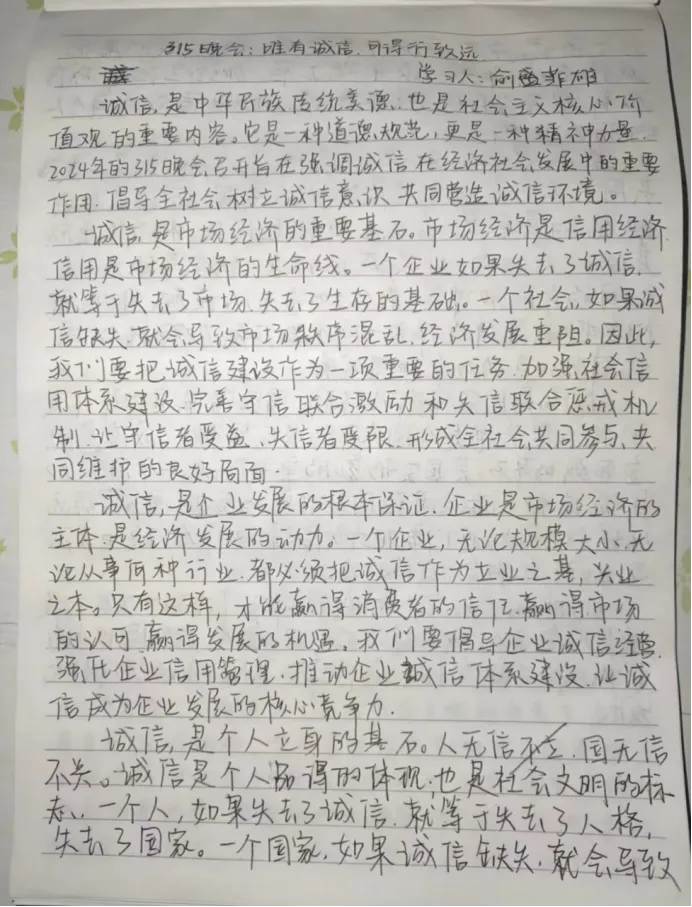 315晚会：唯有诚信，可得行致远
学习人：俞 菲雄
诚信，是中华民族传统美德，也是社会主义核心价
值观的重要内容。它是一种道德规范，更是一种精神力量.
2024年的315晚会召开旨在强调诚信在经济社会发展中的重要
作用，倡导全社会树立诚信意识，共同营造诚信环境。
诚信，是市场经济的重要基石。市场经济是信用经济
信用是市场经济的生命线。一个企业如果失去了诚信，
就等于失去了市场，失去了生存的基础。一个社会，如果诚
信缺失，就会导致市场秩序混乱，经济发展重阻。因此，
我们要把诚信建设作为一项重要的任务，加强社会信
用体系建设，完善守信联合激励和失信联合惩戒机
制，让守信者受益、失信者受限，形成全社会共同参与、共
同维护的良好局面.
诚信，是企业发展的根本保证，企业是市场经济的
主体，是经济发展的动力。一个企业，无论规模大小，无
论从事何种行业，都必须把诚信作为立业之基，兴业
之本。只有这样，才能赢得消费者的信任，赢得市场
的认可，赢得发展的机遇。我们要倡导企业诚信经营，
强化企业信用管理，推动企业诚信体系建设，让诚
信成为企业发展的核心竞争力.
诚信，是个人立身的基石。人无信不立，国无信
不兴。诚信是个人品得的体现，也是社会文明的标
志，一个人，如果失去了诚信，就等于失去了人格，
失去了国家。一个国家，如果诚信缺失，就会导致